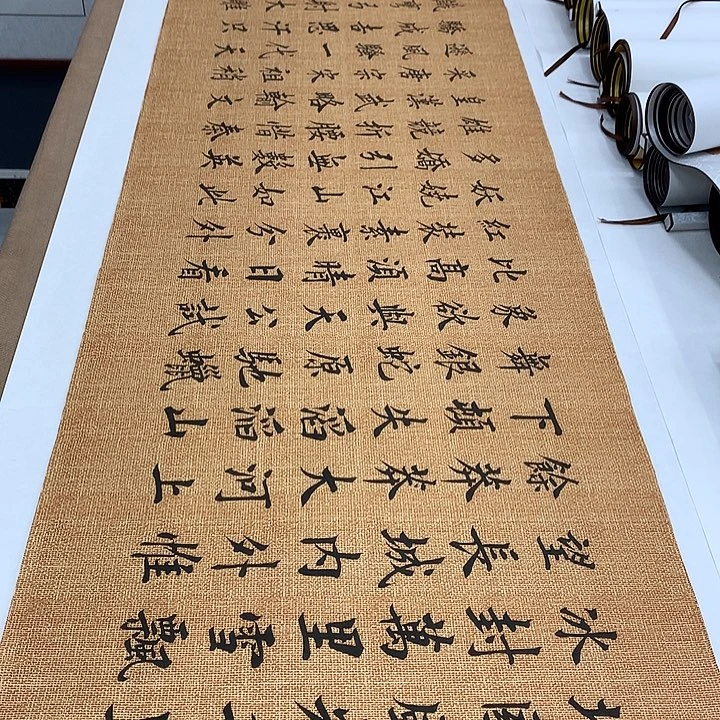 冰封萬里雪飄
望長城内外惟
餘莽莽大河上
下頓失滔滔山
舞銀蛇原馳蠟
象欲與天公試
比高須晴日看
紅妝素裹分外
妖嬈江山如此
多嬌引無數英
雄競折腰惜秦
皇漢武略輸文
采唐宗宋祖稍
遜風騷一代天
驕成吉思汗只